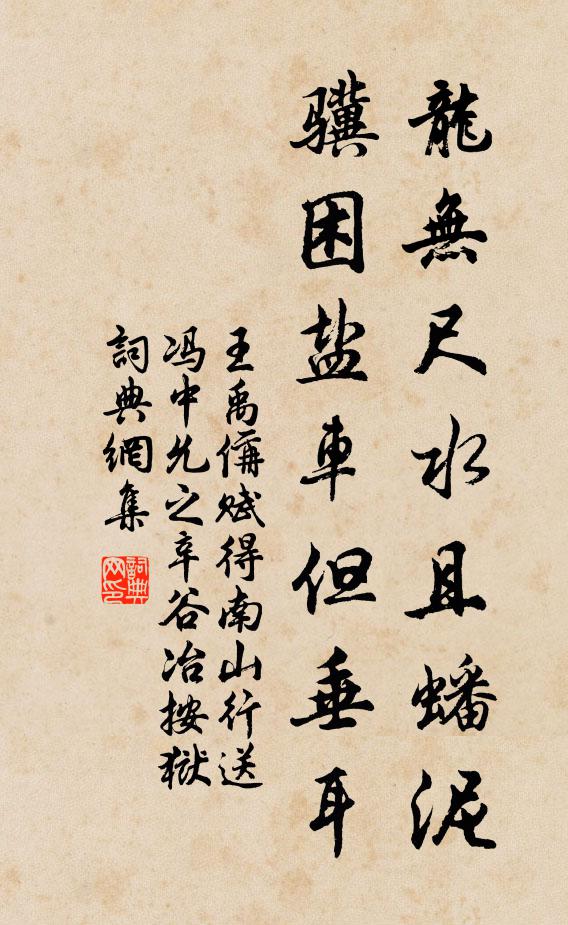 龍無尺水且蟠泥
驥困盐車但垂耳
王禹偁赋得南山行送
冯中允之辛谷冶按獄
詞典網集
詞典网印